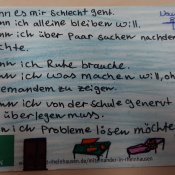 nn es mir schlecht geht.
nn ich alleine bleiben will.
nn ich über Paar suchen nachden
chte.
nn ich Ruhe brauche.
nn ich was machen will, oh
emandem zu zeigen.
nn ich von der schule genervt
überlegen muss.
n ich Probleme lösen möchte